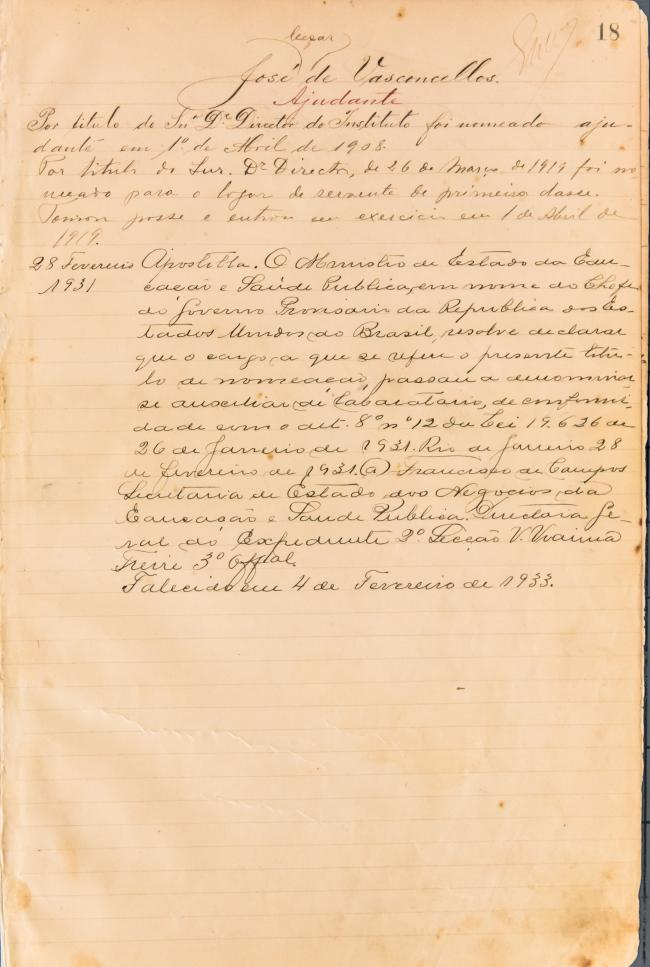 18
José de Vasconcellos.
Ajudante
Por titulo do Snr. Dr. Director do Instituto foi nomeado aju-
dante em 1º de Abril de 1908.
Por titulo do Snr. Dr Director, de 26 de Março de 1919 foi no-
meado para o logar de servente de primeira classe.
Tomou posse e entrou em exercicio em 1 de Abril de
1919.
28 Fevereiro Apostilla. O Ministro de Estado da Edu-
1931 cação e Saúde Publica, em nome do Chefe
do Governo Provisorio da Republica dos Es-
tados Unidos do Brasil, resolve declarar
que o cargo a que se refere o presente titu-
lo de nomeação, passou a denominar
se auxiliar de Laboratorio, de conformi-
dade com o art. 8º nº 12 da Lei 19.626 de
26 de Janeiro de 1931. Rio de Janeiro 28
de fevereiro de 1931. (a) Francisco de Campos
Secretaria de Estado dos Negocios da
Educação e Saude Publica. Directoria Ge-
ral do Expediente 2ª Secção V.
Freire 3º Offial.
Falecido em 4 de Fevereiro de 1933.